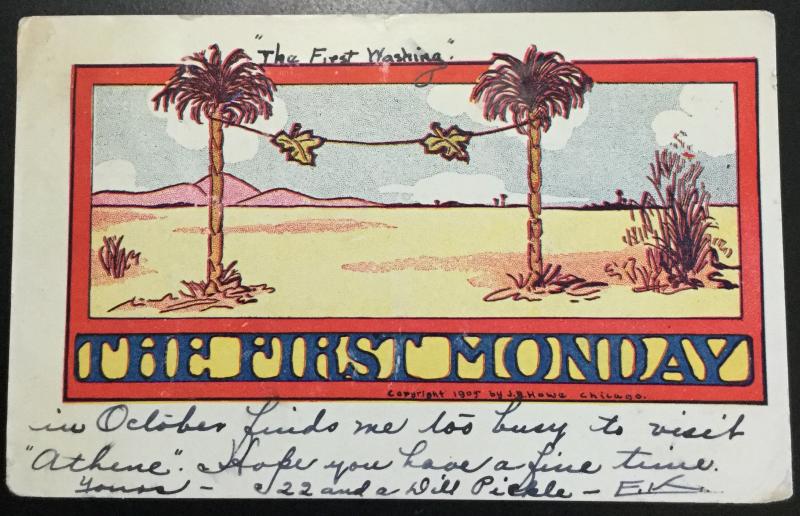 "The First Washing"
THE FIRST MONDAY
Copyright 1905 by J.B. Howe Chicago.
in October finds me too busy to visit
"Athene". Hope you have a fine time.
Yours – 22 and a Dill Pickle – E.K.